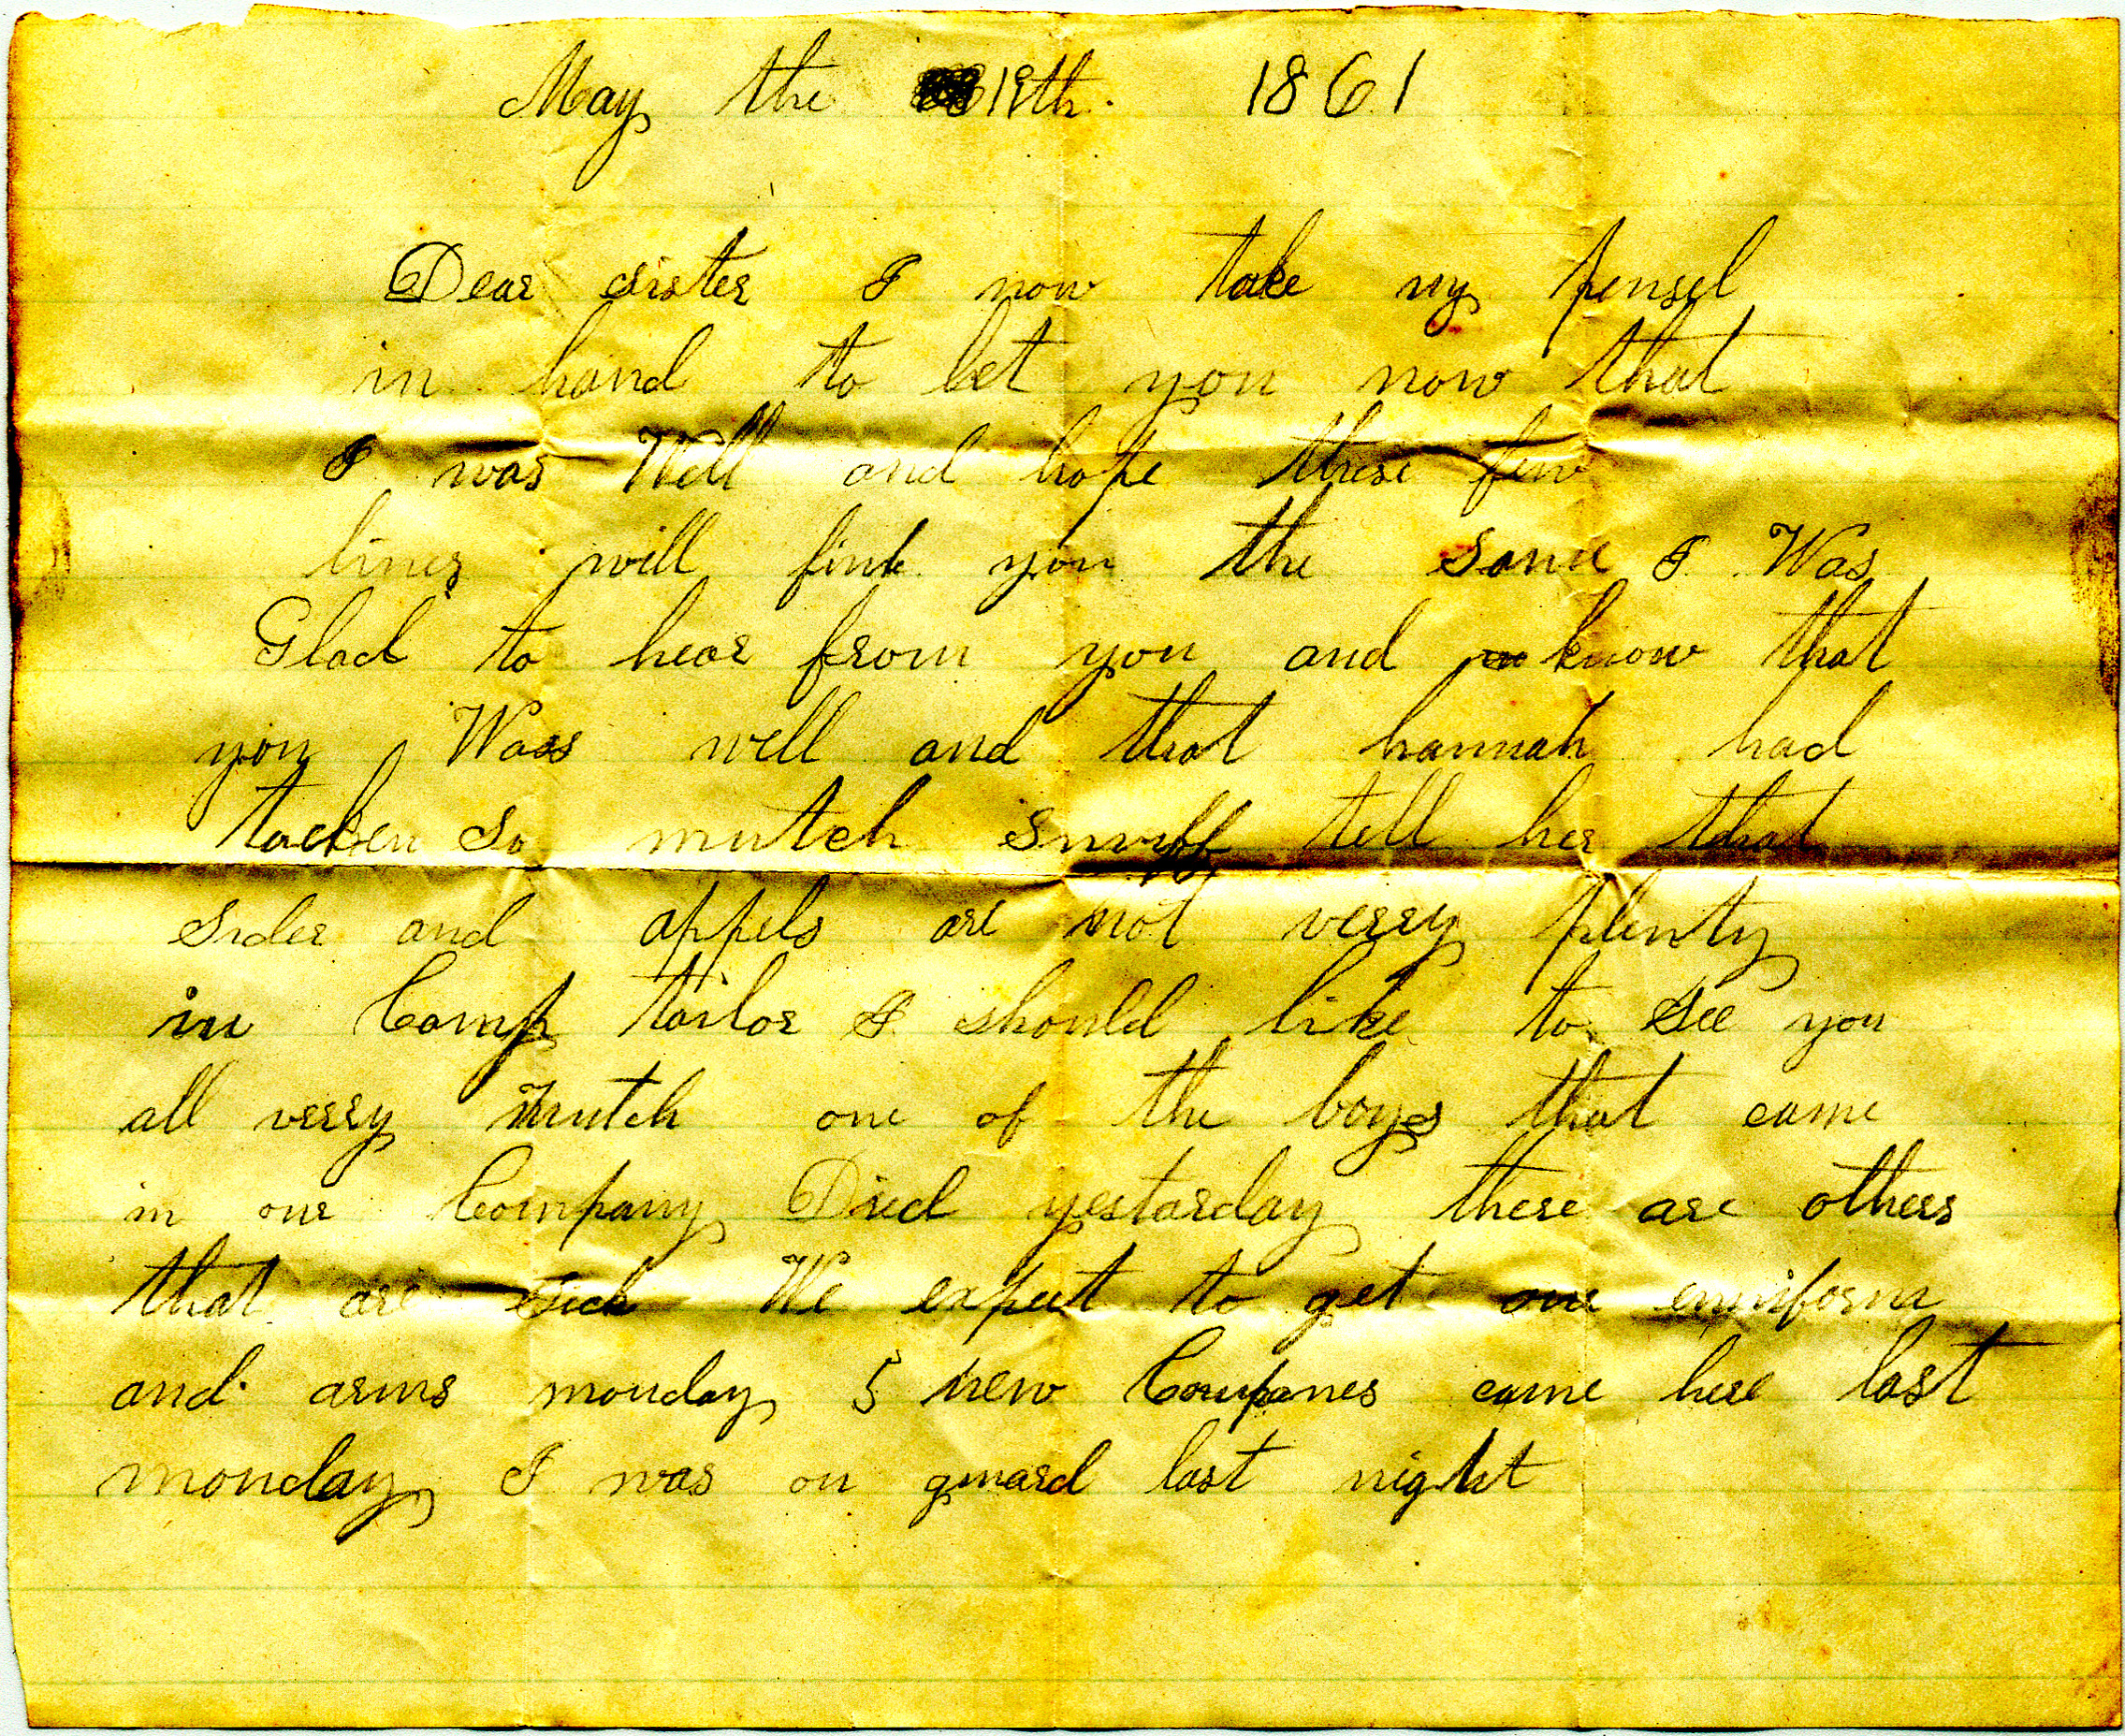 May the 19th. 1861
Dear sister I now take my pensel
in hand to let you now that
I was Well and hope these few
lines will find you the same I Was
Glad to hear from you and know that
you Was well and that hannah had
tacken so mutch snuff tell her that
sider and appels are not verry plenty
in Camp tailor I should like to see you
all verry mutch one of the boys that came
in our Company Died yestarday there are others
that are sick We expect to get our
and arms monday 5 new Companes came here last
monday I was on guard last night